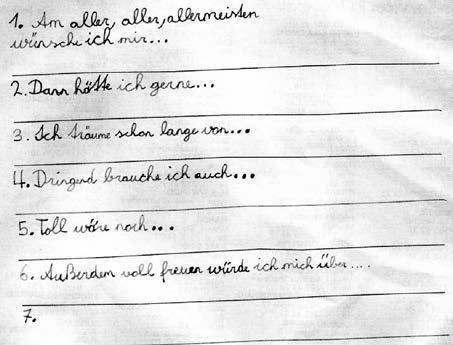 1. Am aller, aller, allermeisten
wünsche ich mir...
2. Dann hätte ich gerne...
3. Ich träume schon lange von...
4. Dringend brauche ich auch...
5. Toll wäre noch...
6. Außerdem voll freuen würde ich mich über....
7.